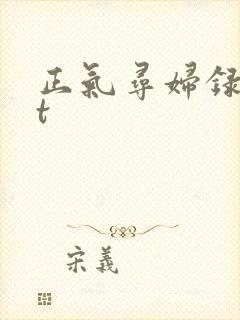 正氣尋婦録
t
宋義